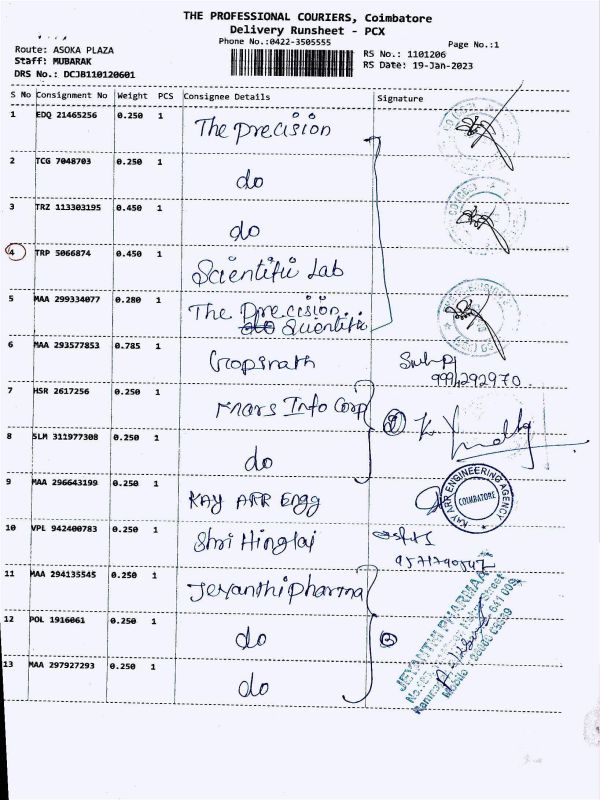 THE PROFESSIONAL COURIERS, Coimbatore
Delivery Runsheet - PCX
Phone No.:0422-3505555
Page No.:1
Route: ASOKA PLAZA
Staff: MUBARAK
DRS No.: DCJB110120601
RS No.: 1101206
RS Date: 19-Jan-2023
S No Consignment No Weight PCS Consignee Details Signature
1 EDQ 21465256 0.250 1 The precision
2 TCG 7048703 0.250 1 do
3 TRZ 113303195 0.450 1 do
4 TRP 5066874 0.450 1 Scientific Lab
5 MAA 299334077 0.280 1 The Precision
Scientific
6 MAA 293577853 0.785 1 Gopinath
7 HSR 2617256 0.250 1 Mars Info Corp
8 SLM 311977308 0.250 1 do
9 MAA 296643199 0.250 1 KAY ARR Engg
KAY ARR ENGINEERING AGENCY
COIMBATORE
10 VPL 942400783 0.250 1 Shri Hinglaj
11 MAA 294135545 0.250 1 Jeyanthi pharma
12 POL 1916061 0.250 1 do
13 MAA 297927293 0.250 1 do
JEYANTHI PHARMAA